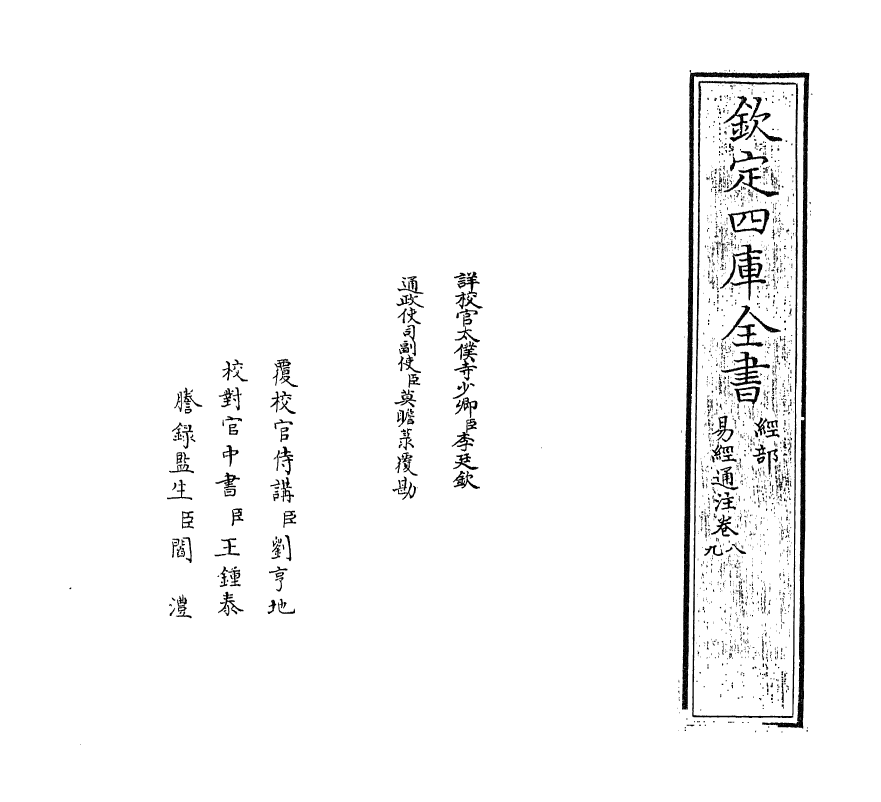 欽定四庫全書
經部
易經通注卷八九
詳校官太僕寺少卿臣李廷欽
通政使司副使臣莫瞻菉覆勘
覆校官侍講臣劉亨地
校對官中書臣王鍾泰
謄錄監生臣閻澧